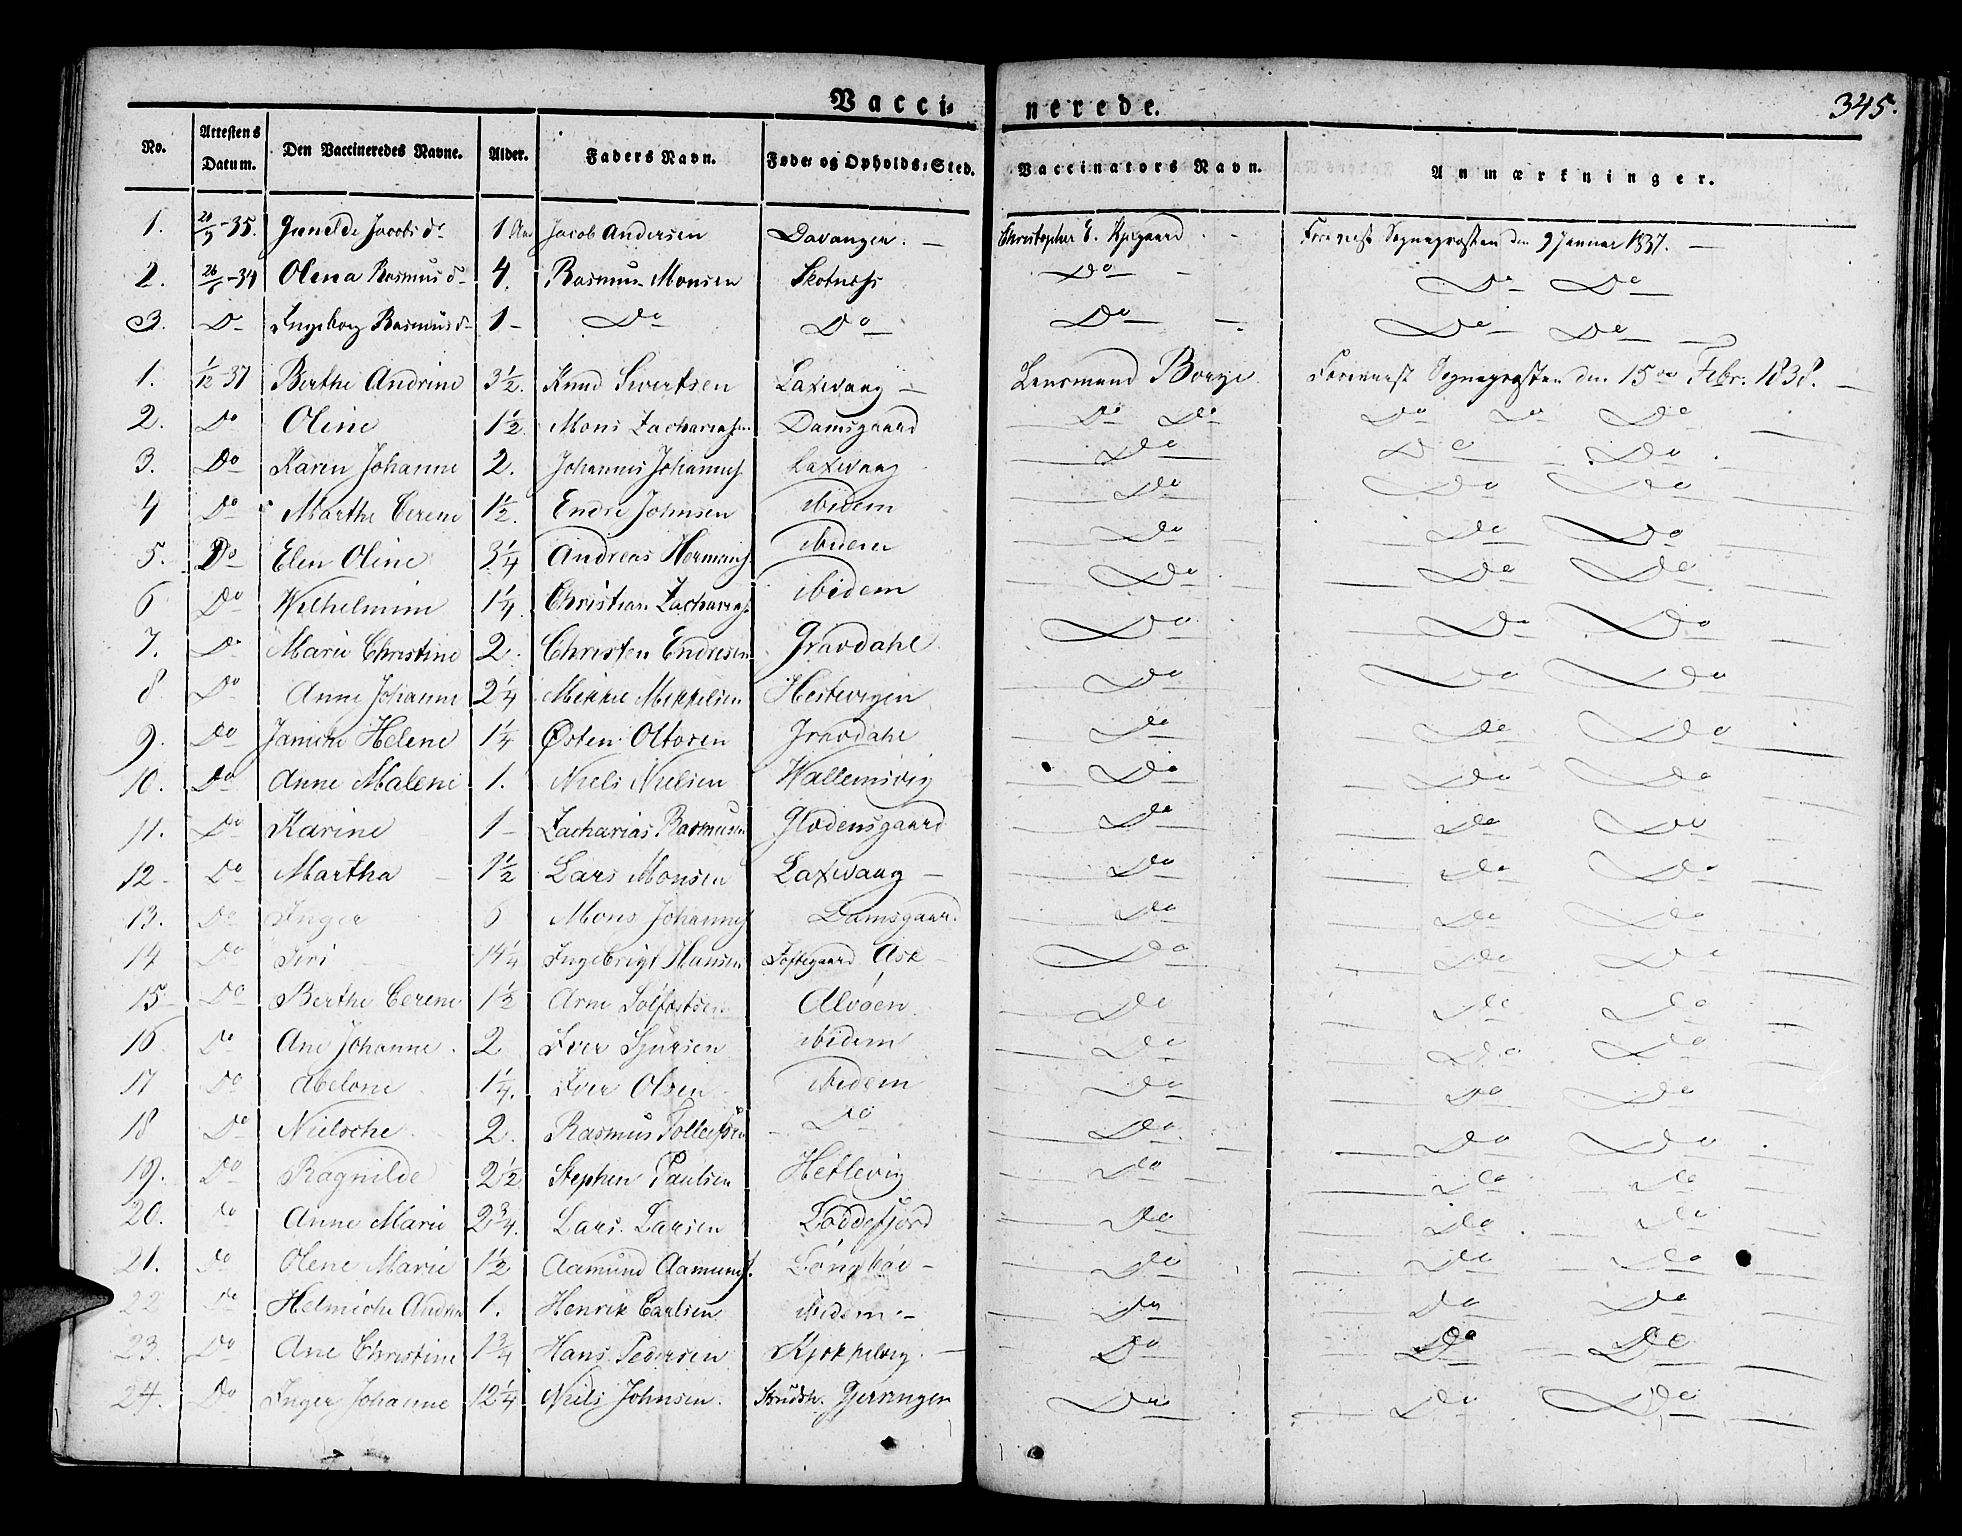 Vacci- nerede. 345.
No. Attestens Datum. Den Vaccineredes Navne. Alder. Faders Navn. Føde- og Opholds-Sted. Vaccinators Navn. Anmærkninger.
1. 20/9-35. Gunilde Jacobsd. 1 Aar Jacob Andersen Davangen. Christopher Forevist Sognepræsten den 9 Januar 1837.
2. 26/6-34 Olena Rasmusd. 4. Rasmus Monsen Skotnæss Do Do Do
3. Do Ingeborg Rasmusd. 1 - Do Do Do Do Do
1. 1/12-37 Berthe Andrine 3½. Knud Sivertsen Laxevaag - Lensmand Borge Forevist Sognepræsten den 15de Febr. 1838.
2. Do Oline 1½. Mons Zachariasen Damsgaard Do Do Do Do Do
3. Do Karen Johanne 2. Johannes Johannes. Laxevaag Do Do Do
4 Do Marthe Cerene 1½. Endre Johnsen ibidem Do Do Do
5. Do Elen Oline 3¼ Andreas Hermans. ibidem Do Do Do
6 Do Wilhelmine 1¼. Christian Zacharias. ibidem Do Do Do
7. Do Marie Christine 2. Christen Endresen Gravdahl. Do Do Do
8 Do Anne Johanne 2¼ Mikkel Mikkelsen Hestevigen Do Do Do
9. Do Janiche Helene 1¼ Østen Ottosen Gravdahl Do Do Do
10. Do Anne Malene 1. Niels Nielsen Wallemsvig Do Do Do
11. Do Karine 1 - Zacharias Rasmusen Glodensgaard Do Do Do
12 - Do Martha 1½ Lars Monsen Laxevaag - Do Do Do
13. Do Inger 6 Mons Johannes Damsgaard. Do Do Do
14 Do Siri 14¼ Ingebrigt Hansen Toftegaard Ask - Do Do Do
15 - Do Berthe Cerene 1½ Arne Solfæstsen Alvøen. Do Do Do
16 Do Ane Johanne. 2 Iver Sjursen ibidem Do Do Do
17 Do Abelone 1¼. Iver Olsen ibidem Do Do Do
18 Do Nielsche. 2. Rasmus Tollefsen Do Do Do Do
19. Do Ragnilde 2½ Stephen Paulsen Hetlevig Do Do Do
20. Do Anne Marie 2¾. Lars Larsen Loddefjord Do Do Do
21. Do Olene Marie 1½ Aamund Aamunds. Lóngbóe - Do Do Do
22 Do Helmiche Andrea 1. Henrik Carlsen ibidem - Do Do Do
23 Do Ane Christine 1¾ Hans Pedersen Kjøkkelvig. - Do Do Do
24. Do Inger Johanne 12¼ Niels Johnsen. Strudsh. Gjerningen Do Do Do